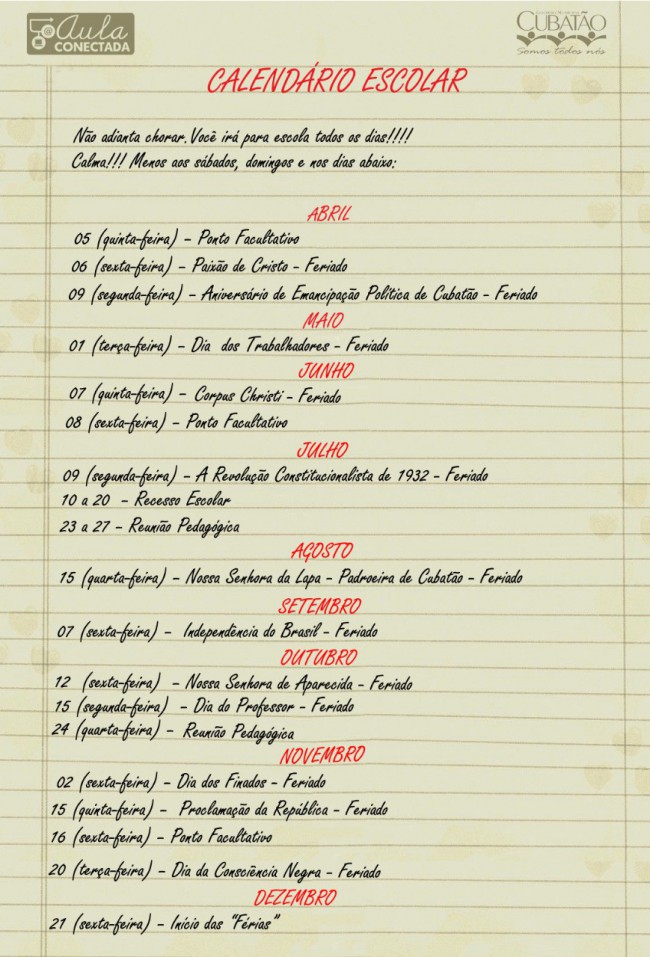 aula
CONECTADA
CUBATÃO
Somos todos nós
CALENDÁRIO ESCOLAR
Não adianta chorar. Você irá para escola todos os dias!!!!
Calma!!! Menos aos sábados, domingos e nos dias abaixo:
ABRIL
05 (quinta-feira) – Ponto Facultativo
06 (sexta-feira) – Paixão de Cristo - Feriado
09 (segunda-feira) – Aniversário de Emancipação Política de Cubatão – Feriado
MAIO
01 (terça-feira) – Dia dos Trabalhadores – Feriado
JUNHO
07 (quinta-feira) – Corpus Christi – Feriado
08 (sexta-feira) – Ponto Facultativo
JULHO
09 (segunda-feira) – A Revolução Constitucionalista de 1932 – Feriado
10 a 20 – Recesso Escolar
23 a 27 – Reunião Pedagógica
AGOSTO
15 (quarta-feira) – Nossa Senhora da Lapa – Padroeira de Cubatão – Feriado
SETEMBRO
07 (sexta-feira) – Independência do Brasil – Feriado
OUTUBRO
12 (sexta-feira) – Nossa Senhora de Aparecida – Feriado
15 (segunda-feira) – Dia do Professor – Feriado
24 (quarta-feira) – Reunião Pedagógica
NOVEMBRO
02 (sexta-feira) – Dia dos Finados – Feriado
15 (quinta-feira) – Proclamação da República – Feriado
16 (sexta-feira) – Ponto Facultativo
20 (terça-feira) – Dia da Consciência Negra – Feriado
DEZEMBRO
21 (sexta-feira) – Início das “Férias”